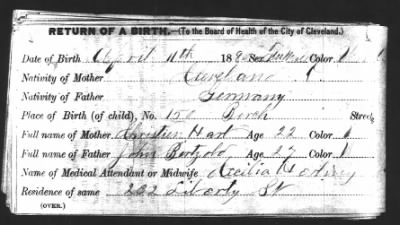 RETURN OF A BIRTH.—(To the Board of Health of the City of Cleveland.)
Date of Birth April 11th 188 Sex Color
Nativity of Mother Cleveland
Nativity of Father Germany
Place of Birth (of child), No. 150 Birch Street
Full name of Mother Christien Hart Age 22 Color
Full name of Father John Age 27 Color
Name of Medical Attendant or Midwife Cecilia
Residence of same 232 Liberty St
(OVER.)